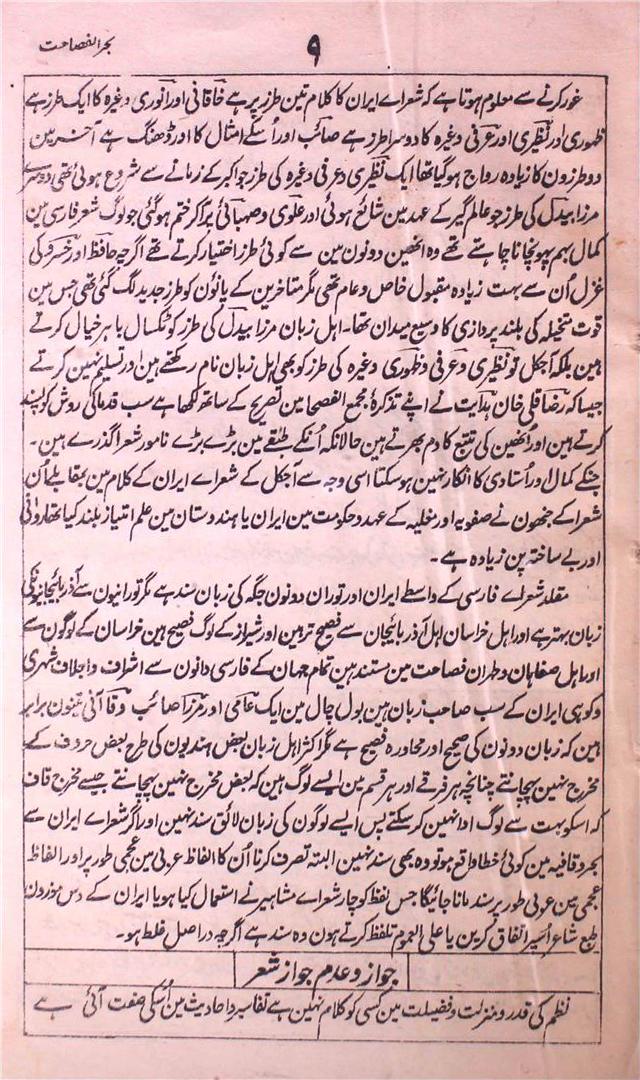 بحر الفصاحت
۹
غور کرنے سے معلوم ہوتا ہے کہ شعراے ایران کا کلام تین طرز پر ہے خاقانی اور انوری وغیرہ کا ایک طرز ہے
ظہوری اور نظیری اور عرفی وغیرہ کا دوسرا طرز ہے صائب اور اُسکے امثال کا اور ڈھنگ ہے آخر مین
دو طرزون کا زیادہ رواج ہوگیا تھا ایک نظیری و عرفی وغیرہ کی طرز جو اکبر کے زمانے سے شروع ہوئی تھی دوسرے
مرزا بیدل کی طرز جو عالم گیر کے عہد مین شائع ہوئی اور علوی و صہبائی پر آکر ختم ہوگئی جو لوگ شعر فارسی مین
کمال بہم پہونچانا چاہتے تھے وہ انھین دونون مین سے کوئی طرز اختیار کرتے تھے اگرچہ حافظ اور خسرو کی
غزل اُن سے بہت زیادہ مقبول خاص و عام تھی مگر متاخرین کے پائون کو طرز جدید لگ گئی تھی جس مین
قوت متخیلہ کی بلند پردازی کا وسیع میدان تھا۔ اہل زبان مرزا بیدل کی طرز کو ٹکسال باہر خیال کرتے
ہین بلکہ آجکل تو نظیری و عرفی و ظہوری وغیرہ کی طرز کو بھی اہل زبان نام رکھتے ہین اور تسلیم نہین کرتے
جیسا کہ رضا قلی خان ہدایت نے اپنے تذکرۂ مجمع الفصحا مین تصریح کے ساتھ لکھا ہے سب قدما کی روش کو پسند
کرتے ہین اور اُنھین کی تتبع کا دم بھرتے ہین حالانکہ اُنکے طبقے مین بڑے بڑے نامور شعرا گذرے ہین۔
جنکے کمال اور اُستادی کا انکار نہین ہوسکتا اسی وجہ سے آجکل کے شعراے ایران کے کلام مین بمقابلے اُن
شعرا کے جنھون نے صفویہ اور مغلیہ کے عہد و حکومت مین ایران یا ہندوستان مین علم امتیاز بلند کیا تھا روانی
اور بے ساختہ پن زیادہ ہے۔
مقلد شعراے فارسی کے واسطے ایران اور توران دونون جگہ کی زبان سند ہے مگر تورانیون سے آذربائیجانیونکی
زبان بہتر ہے اور اہل خراسان اہل آذربائیجان سے فصیح تر ہین اور شیراز کے لوگ فصیح ہین خراسان کے لوگون سے
اور اہل صفاہان و طہران فصاحت مین مستند ہین تمام جہان کے فارسی دانون سے اشراف و اجلاف شہری
و کوہی ایران کے سب صاحب زبان ہین بول چال مین ایک عامی اور مرزا صائب و قاآنی تینون برابر
ہین کہ زبان دونون کی صحیح اور محاورہ فصیح ہے مگر اکثر اہل زبان بعض ہندیون کی طرح بعض حروف کے
مخرج نہین پہچانتے چنانچہ ہر فرقے اور ہر قسم مین ایسے لوگ ہین کہ بعض مخرج نہین پہچانتے جیسے مخرج قاف
کہ اسکو بہت سے لوگ ادا نہین کرسکتے پس ایسے لوگون کی زبان لائق سند نہین اور اگر شعراے ایران سے
بحر و قافیہ مین کوئی خطا واقع ہو تو وہ بھی سند نہین البتہ تصرف کرنا اُن کا الفاظ عربی مین عجمی طور پر اور الفاظ
عجمی مین عربی طور پر سند مانا جائیگا جس لفظ کو چار شعراے مشاہیر نے استعمال کیا ہو یا ایران کے دس موزون
طبع شاعر اُسپر اتفاق کرین یا علی العموم تلفظ کرتے ہون وہ سند ہے اگرچہ در اصل غلط ہو۔
جواز و عدم جواز شعر
نظم کی قدر و منزلت و فضیلت مین کسی کو کلام نہین ہے تفاسیر و احادیث مین اُسکی صفت آئی ہے